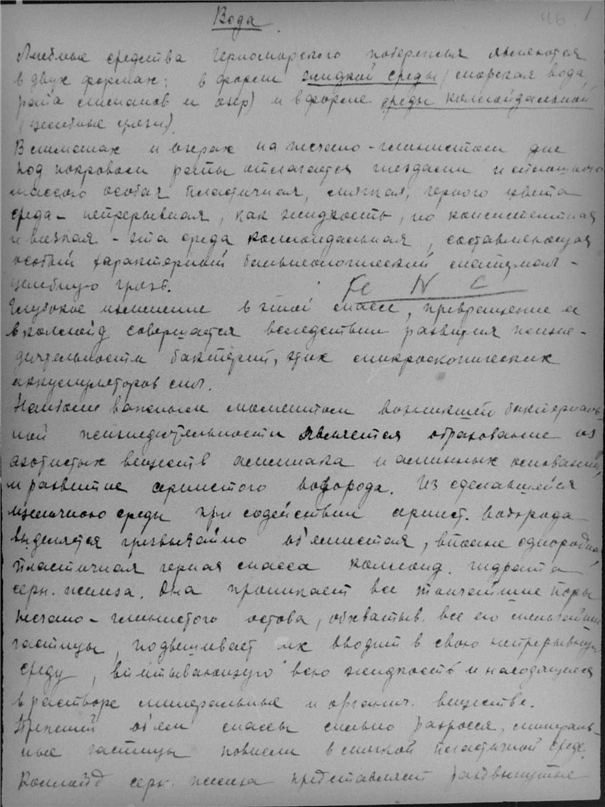 Вода.
46 1
Лечебные средства Черноморского побережья являются
в двух формах: в форме жидкой среды (морская вода,
рапа лиманов и озер) и в форме среды коллоидальной
(целебные грязи).
В лиманах и озерах на песчано-глинистом дне
под покровом рапы отлагается гнездами и сплошной
массой особая пластичная, мягкая, черного цвета
среда - непрерывная, как жидкость, но консистентная
и вязкая - эта среда коллоидальная, составляющая
особый характерный бальнеологический материал -
целебную грязь.
Fe N C
Глубокое изменение в этой массе, превращение ее
в коллоид совершается вследствие развития жизне-
деятельности бактерий, этих микроскопических
аккумуляторов сил.
Наиболее важным моментом возникшей бактериаль-
ной жизнедеятельности является образование из
азотистых веществ аммиака и аминных оснований,
и развитие сернистого водорода. Из сделавшейся
щелочною среды при содействии сернист. водорода
выделяется чрезвычайно объемистая, вполне однородная
пластичная черная масса коллоид. гидрата
серн. железа. Она проникает все тончайшие поры
песчано-глинистого остова, обхватыв. все его мельчайшие
частицы, подвешивает их вводит в свою непрерывную
среду, впитывающую всю жидкость и находящиеся
в растворе минеральные и органич. вещества.
Прежний объем массы сильно разросся, минераль-
ные частицы повисли в мягкой пластичной среде.
Коллоид серн. железа представляет